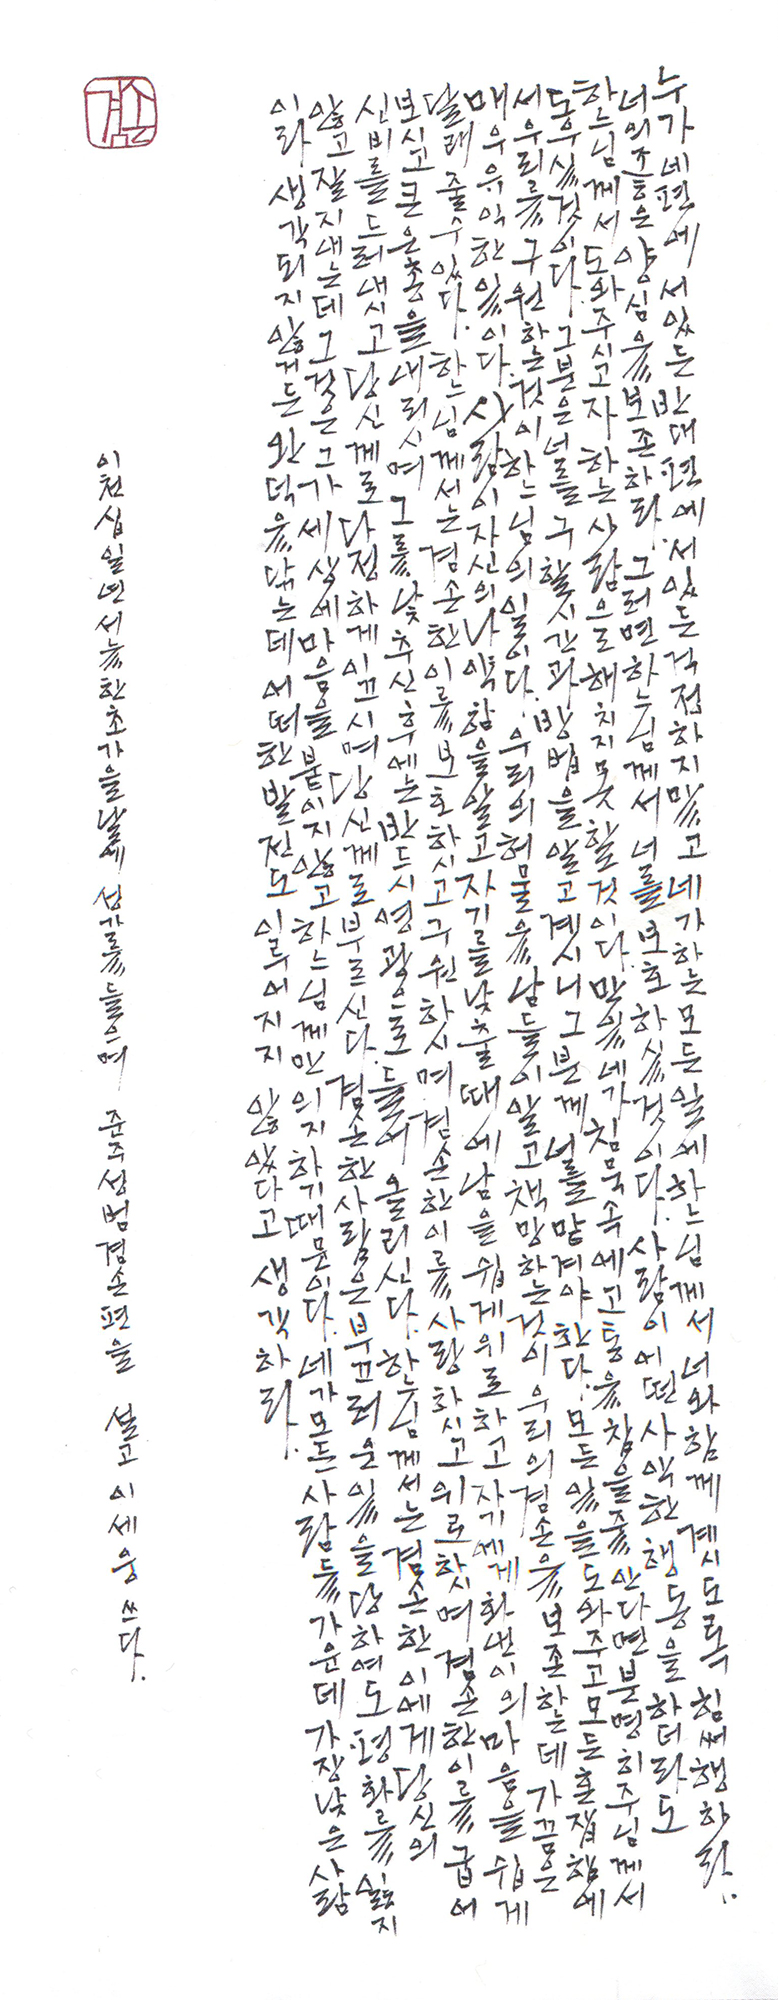 누가 네 편에 서 있든 반대편에 서 있든 걱정하지 말고 네가 하는 모든 일에 하느님께서 너와 함께 계시도록 힘써 행하라.
너의 좋은 양심을 보존하라. 그러면 하느님께서 너를 보호하실 것이다. 사람이 어떤 사악한 행동을 하더라도
하느님께서 도와주시고자 하는 사람으로 해치지 못할 것이다. 만일 네가 침묵 속에 고통을 참을 줄 안다면 분명히 주님께서
도우실 것이다. 그분은 너를 구할 시간과 방법을 알고 계시니 그분께 너를 맡겨야 한다. 모든 일을 도와주고 모든 혼잡함에
서 우리를 구원하는 것이 하느님의 일이다. 우리의 허물을 남들이 알고 책망하는 것이 우리의 겸손을 보존하는데 가끔은
매우 유익한 일이다. 사람이 자신의 나약함을 알고 자기를 낮출 때에 남을 쉽게 위로하고 자기에게 화낸 이의 마음을 쉽게
달래 줄 수 있다. 하느님께서는 겸손한 이를 보호하시고 구원하시며 겸손한 이를 사랑하시고 위로하시며 겸손한 이를 굽어
보시고 큰 은총을 내리시며 그를 낮추신 후에는 반드시 영광으로 들어 올리신다. 하느님께서는 겸손한 이에게 당신의
신비를 드러내시고 당신께로 다정하게 이끄시며 당신께로 부르신다. 겸손한 사람은 부끄러운 일을 당하여도 평화를 잃지
않고 잘 지내는데 그것은 그가 세상에 마음을 붙이지 않고 하느님께만 의지하기 때문이다. 네가 모든 사람들 가운데 가장 낮은 사람
이라 생각되지 않거든 완덕을 닦는데 어떠한 발전도 이루어지지 않았다고 생각하라.
이천십일년 서늘한 초가을날에 성가를 들으며 준주성범 겸손편을 설고 이세웅 쓰다.
겸손